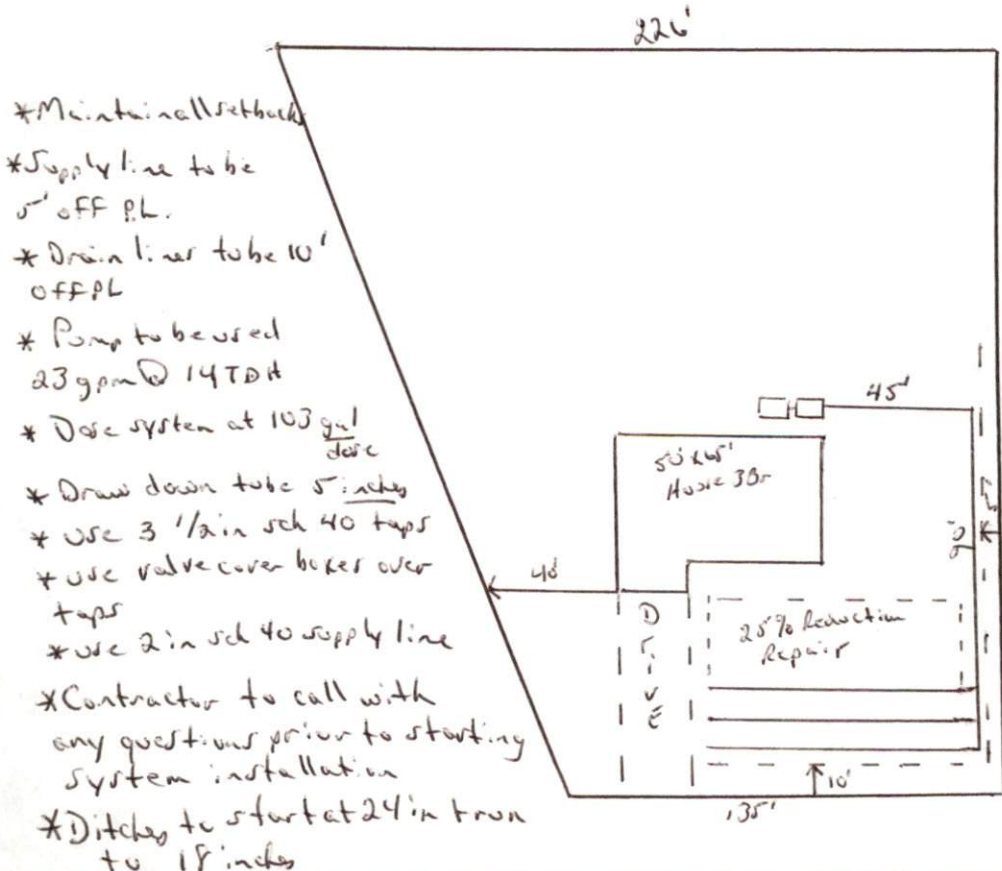 226'
*Maintain all setbacks
*Supply line to be
5' off P.L.
* Drain lines to be 10'
off PL
* Pump to be used
23 gpm @ 14 TDH
* Dose system at 103 gal/dose
* Draw down to be 5 inches
* use 3 1/2 in sch 40 taps
* use valve cover boxes over
taps
* use 2 in sch 40 supply line
*Contractor to call with
any questions prior to starting
system installation
*Ditches to start at 24 in
to 18 inches
45'
House 3Br
40'
Drive
25% Reduction
Repair
10'
135'